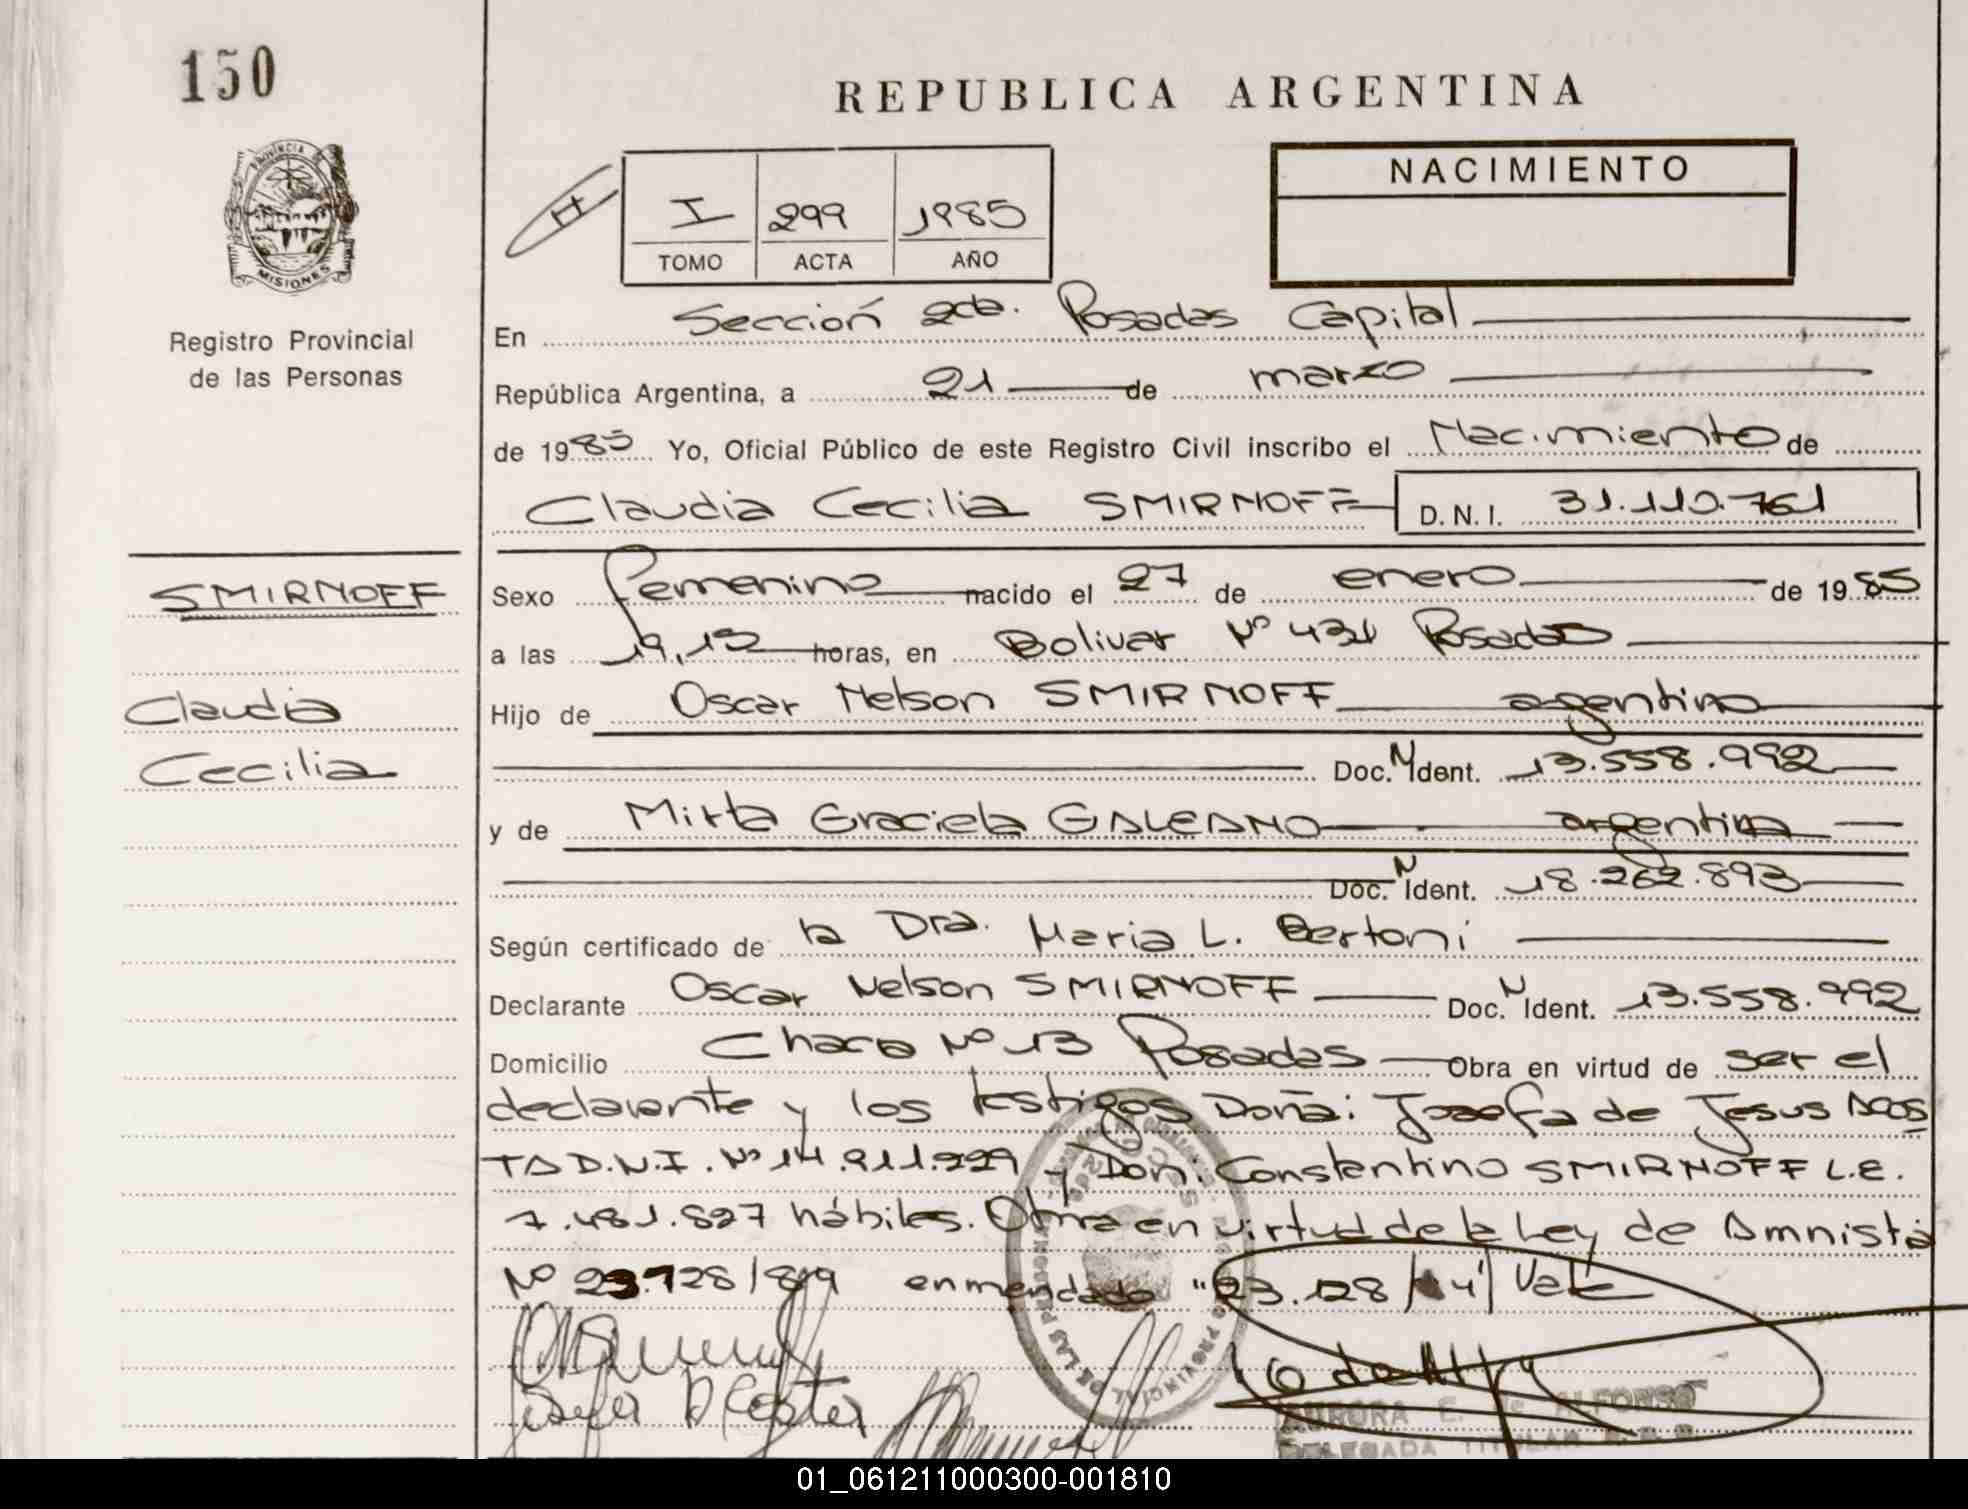 150
REPUBLICA ARGENTINA
PROVINCIA DE
MISIONES
Registro Provincial
de las Personas
H
I 299 1985
TOMO ACTA AÑO
NACIMIENTO
En Sección 2da. Posadas Capital
República Argentina, a 21 de marzo
de 1985 Yo, Oficial Público de este Registro Civil inscribo el Nacimiento de
Claudia Cecilia SMIRNOFF D.N.I. 31.110.761
SMIRNOFF
Claudia
Cecilia
Sexo femenino nacido el 27 de enero de 1985
a las 19,15 horas, en Bolivar Nº 431 Posadas
Hijo de Oscar Nelson SMIRNOFF argentino
Doc. N Ident. 13.558.992
y de Mirta Graciela GALEANO argentina
Doc. N Ident. 18.262.893
Según certificado de la Dra. Maria L. Bertoni
Declarante Oscar Nelson SMIRNOFF Doc. N Ident. 13.558.992
Domicilio Chaca Nº 13 Posadas Obra en virtud de ser el
declarante y los testigos Doña: Josefa de Jesus ACOS
TA D.N.I. Nº 14.911.999 y Don. Constantino SMIRNOFF L.E.
7.481.527 hábiles. Obra en virtud de la Ley de Amnistia
Nº 23.128/84 enmendado "23.128/84" Vale
AURORA E. de ALFONSO
DELEGADA TITULAR
01_061211000300-001810